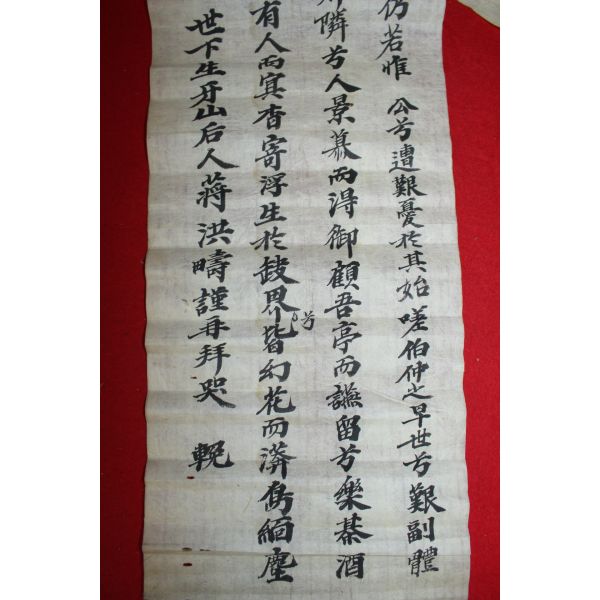 仍若惟 公兮遭艱憂於其始嗟伯仲之早世兮艱副體
隣兮人景慕而得御顧吾亭而讌留兮樂棊酒
有人而寘杳寄浮生於缺界兮皆幻花而漭爲緬塵
世下生牙山后人蔣洪疇謹再拜哭 輓